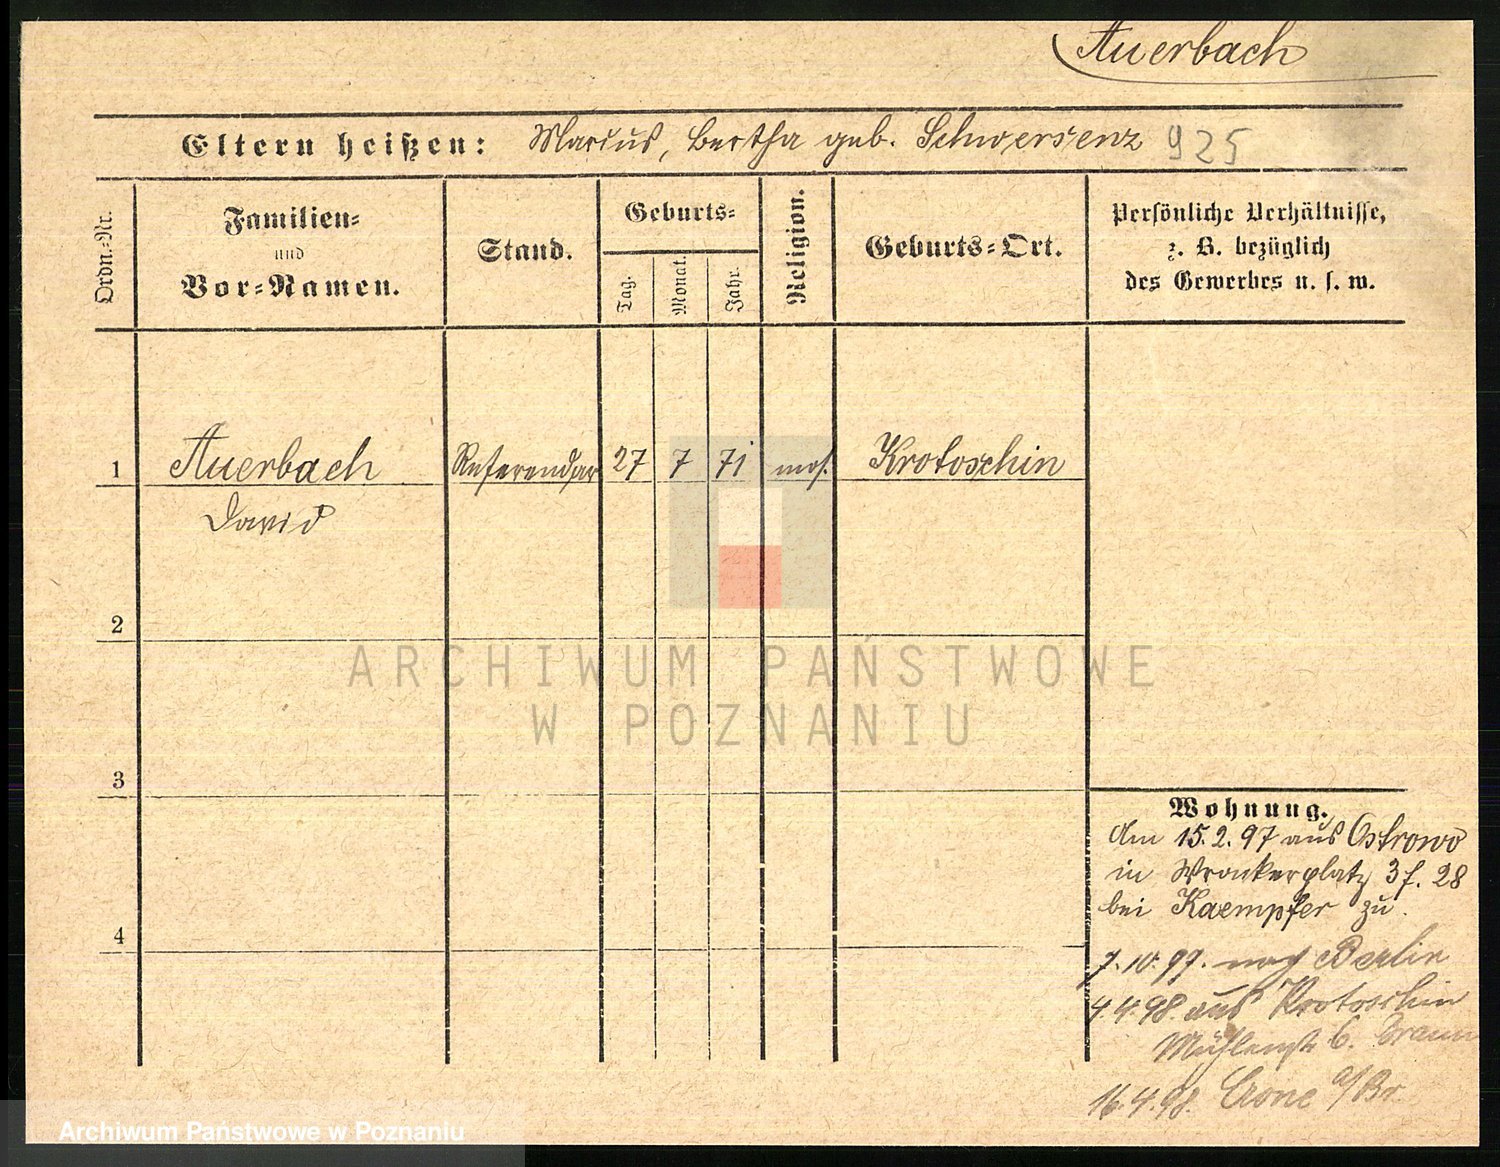 Auerbach
Eltern heißen: Marcus, Bertha geb. Schwersenz 925
Ordn.-Nr.
Familien-
und
Vor-Namen.
Stand.
Geburts-
Tag.
Monat.
Jahr.
Religion.
Geburts-Ort.
Persönliche Verhältnisse,
z. B. bezüglich
des Gewerbes u. s. w.
1 Auerbach Referendar 27 7 71 mos. Krotoschin
David
2
3
4
Wohnung.
Am 15.2.97 aus Ostrowo
in Wronkerplatz 3 f. 28
bei Kaempfer zu.
7.10.97. nach Berlin
4.4.98. aus Krotoschin
Mühlenstr 6. Braun
16.4.98. Crone a/Br.
ARCHIWUM PAŃSTWOWE
W POZNANIU
Archiwum Państwowe w Poznaniu